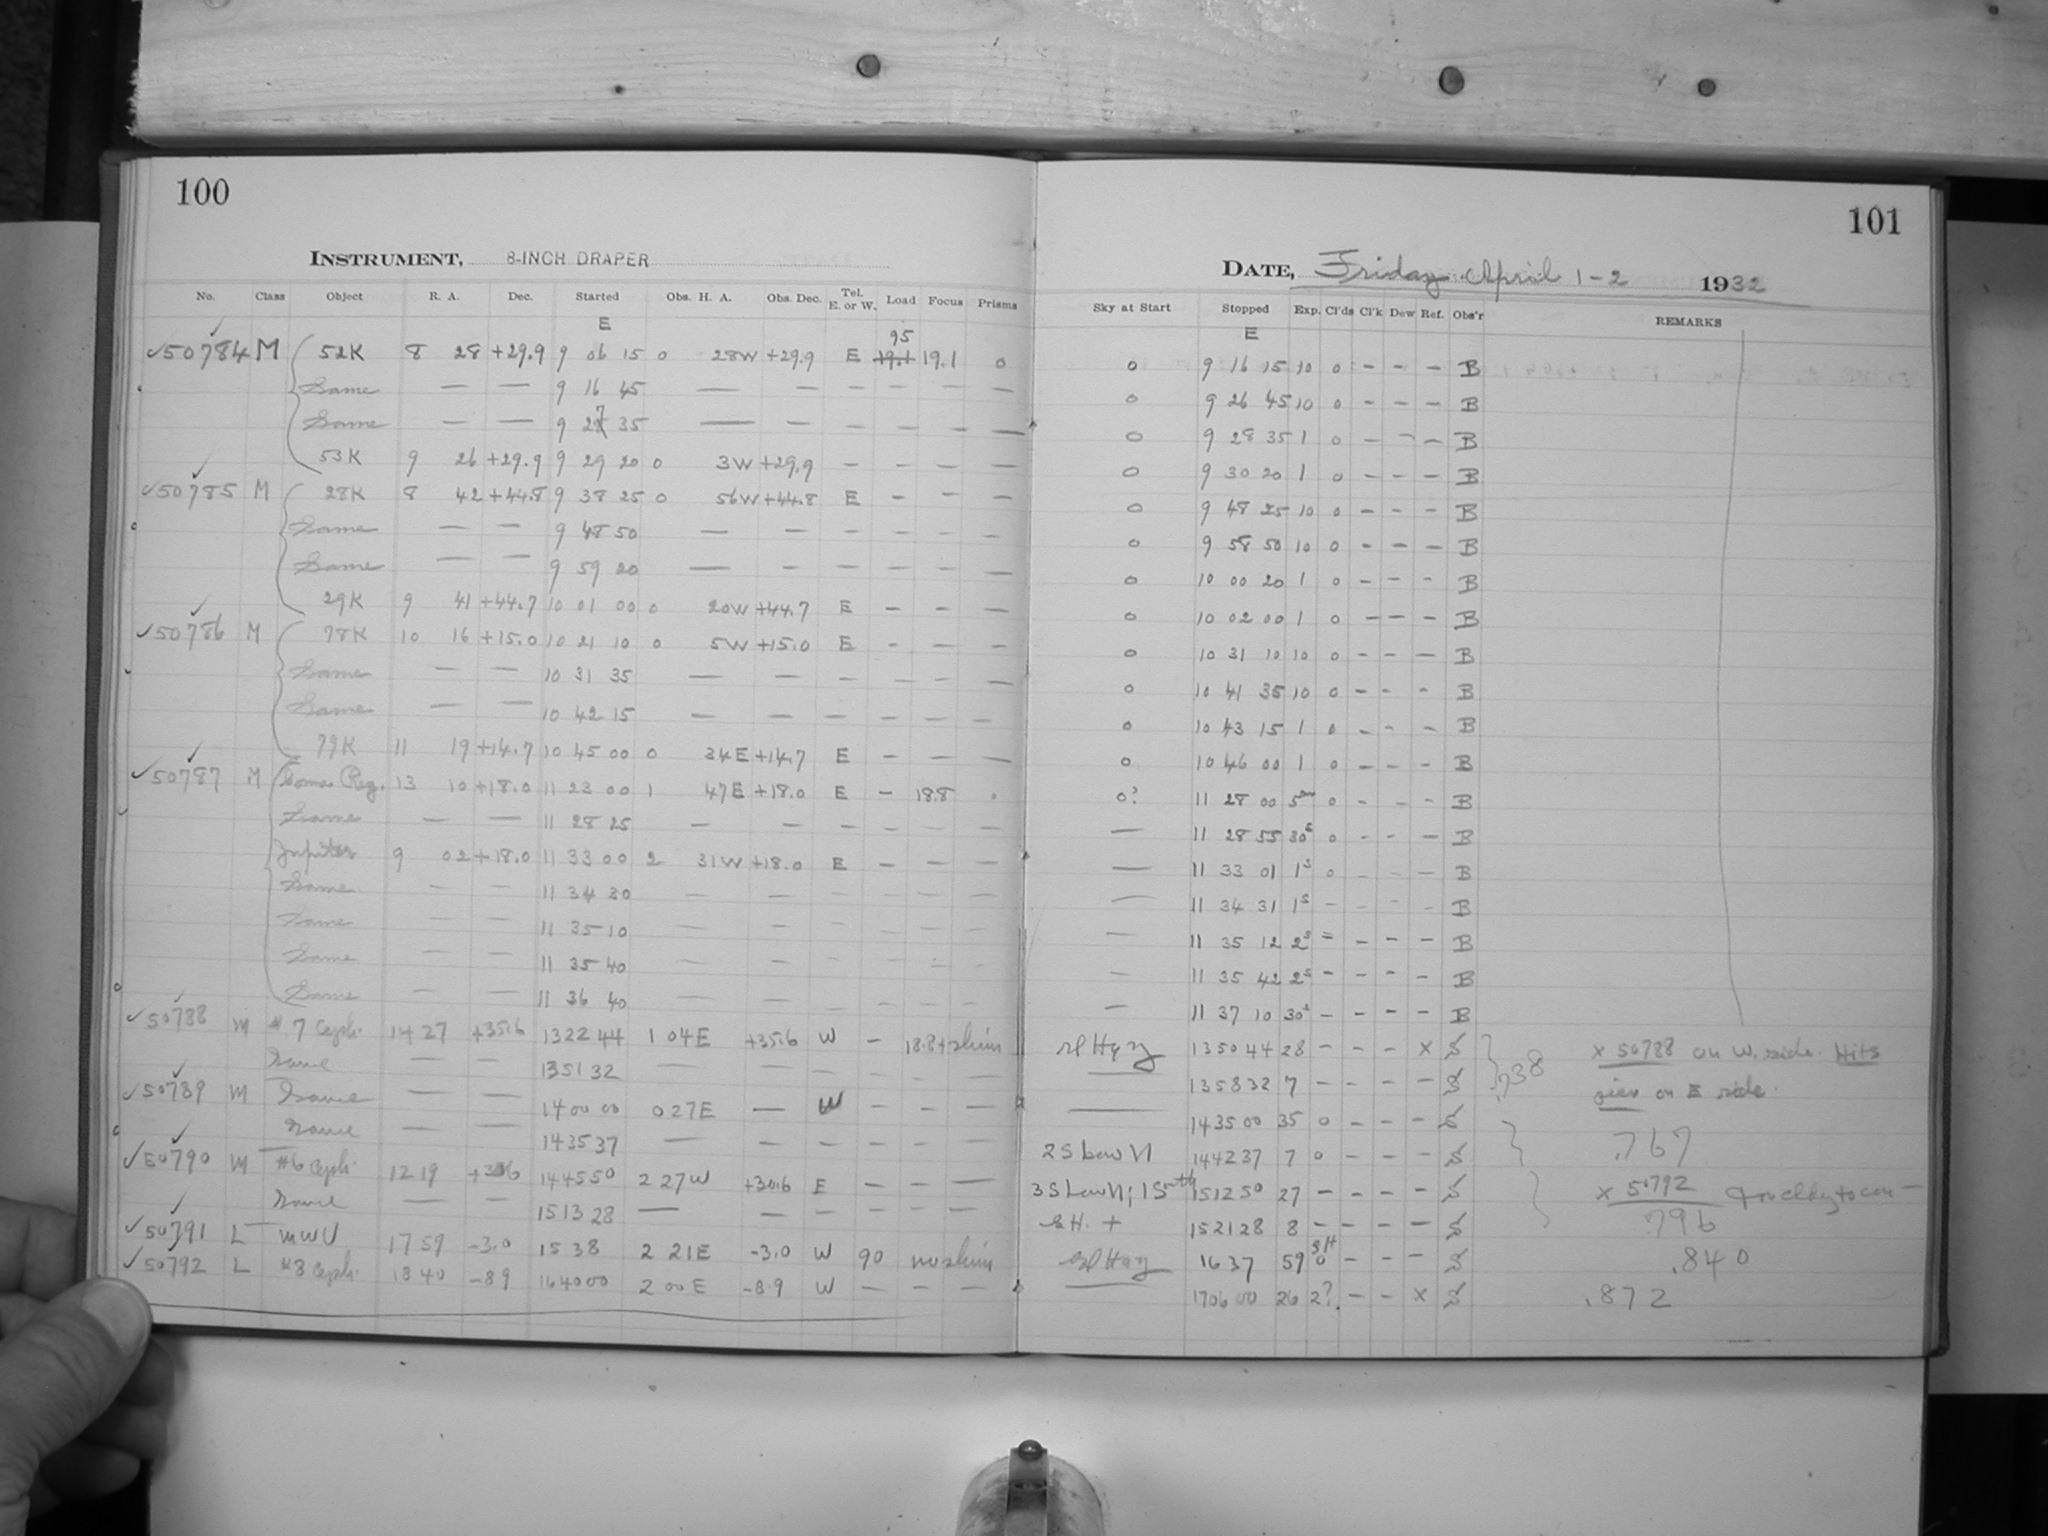 100
INSTRUMENT, 8-INCH DRAPER
No. Class Object R. A. Dec. Started Obs. H. A. Obs. Dec. Tel. E. or W. Load Focus Prisms
E
95
✓50784 M 52K 8 28 +29.9 9 06 15 0 28W +29.9 E 19.1 19.1 0
Same — — 9 16 45 — — — — — —
Same — — 9 27 35 — — — — — —
53K 9 26 +29.9 9 29 20 0 3W +29.9 — — — —
✓50785 M 28K 8 42 +44.8 9 38 25 0 56W +44.8 E — — —
Same — — 9 48 50 — — — — — —
Same — — 9 59 20 — — — — — —
29K 9 41 +44.7 10 01 00 0 20W +44.7 E — — —
✓50786 M 78K 10 16 +15.0 10 21 10 0 5W +15.0 E — — —
Same — — 10 31 35 — — — — — —
Same — — 10 42 15 — — — — — —
79K 11 19 +14.7 10 45 00 0 34E +14.7 E — — —
✓50787 M Reg. 13 10 +18.0 11 23 00 1 47E +18.0 E — 18.8 .
Same — — 11 28 25 — — — — — —
Jupiter 9 02 +18.0 11 33 00 2 31W +18.0 E — — —
Same — — 11 34 30 — — — — — —
Same — — 11 35 10 — — — — — —
Same — — 11 35 40 — — — — — —
Same — — 11 36 40 — — — — — —
✓50788 M #7 Ceph. 14 27 +35.6 13 22 44 1 04E +35.6 W — 18.8+shim
Same — — 13 51 32 — — — — — —
✓50789 M Same — — 14 00 00 0 27E — W — — —
Same — — 14 35 37 — — — — — —
✓50790 M #6 Ceph. 12 19 14 45 50 2 27W E — — —
Same — — 15 13 28 — — — — — —
✓50791 L MWU 17 59 -3.0 15 38 2 21E -3.0 W 90 no shim
✓50792 L #8 Ceph. 18 40 -8.9 16 40 00 2 00E -8.9 W — — —
101
DATE, Friday April 1-2 1932
Sky at Start Stopped Exp. Cl'ds Cl'k Dew Ref. Obs'r REMARKS
E
0 9 16 15 10 0 - - - B
0 9 26 45 10 0 - - - B
0 9 28 35 1 0 - - - B
0 9 30 20 1 0 - - - B
0 9 48 25 10 0 - - - B
0 9 58 50 10 0 - - - B
0 10 00 20 1 0 - - - B
0 10 02 00 1 0 - - - B
0 10 31 10 10 0 - - - B
0 10 41 35 10 0 - - - B
0 10 43 15 1 0 - - - B
0 10 46 00 1 0 - - - B
0? 11 28 00 5m 0 - - - B
— 11 28 55 30s 0 - - - B
— 11 33 01 1s 0 - - - B
— 11 34 31 1s - - - - B
— 11 35 12 2s - - - - B
— 11 35 42 2s - - - - B
— 11 37 10 30s - - - - B
13 50 44 28 - - - x S .738 x 50788 on W. side. Hits
13 58 32 7 - - - - S pier on E side.
— 14 35 00 35 0 - - - S
2S Low N 14 42 37 7 0 - - - S .767
3S Low N; 1 South 15 12 50 27 - - - - S x 50792
15 21 28 8 - - - - S .796
16 37 59 - - - S .840
17 06 00 26 2? - - x S .872